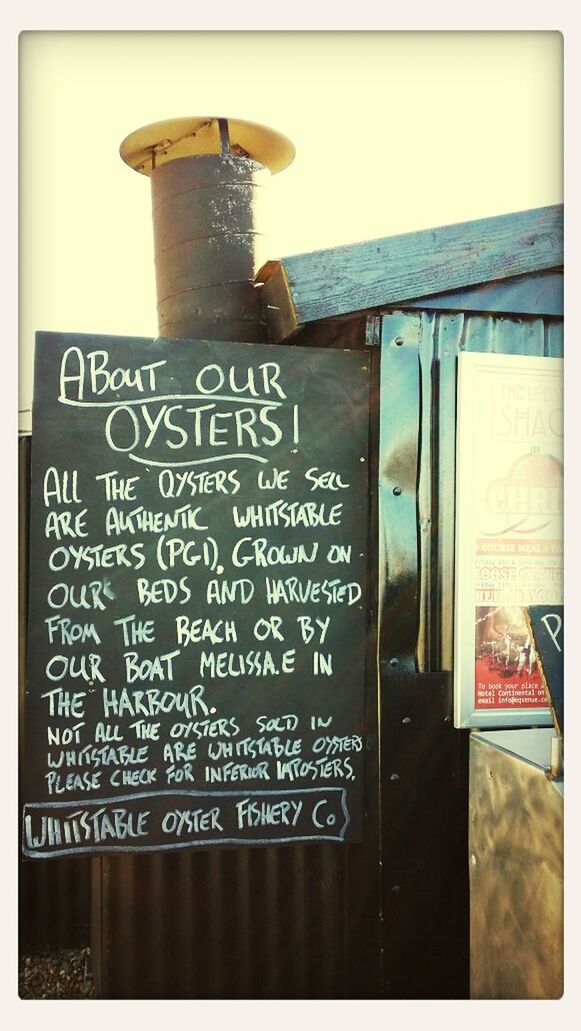 ABOUT OUR
OYSTERS!
ALL THE OYSTERS WE SELL
ARE AUTHENTIC WHITSTABLE
OYSTERS (PGI), GROWN ON
OUR BEDS AND HARVESTED
FROM THE BEACH OR BY
OUR BOAT MELISSA.E IN
THE HARBOUR.
NOT ALL THE OYSTERS SOLD IN
WHITSTABLE ARE WHITSTABLE OYSTERS
PLEASE CHECK FOR INFERIOR IMPOSTERS.
WHITSTABLE OYSTER FISHERY Co
THE LOBS
SHAC
CHRI
COURSE MEAL &
To book your place
Hotel Continental on
email info@eqvenue.co
P